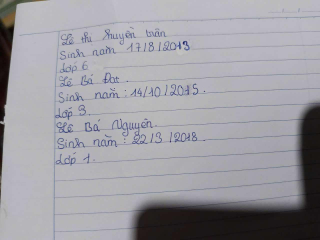 Lê thị huyền trân
Sinh năm 17/8/2013
Lớp 6
Lê Bá Đạt.
Sinh năm: 14/10/2015.
Lớp 3.
Lê Bá Nguyên.
Sinh năm: 22/3/2018.
Lớp 1.